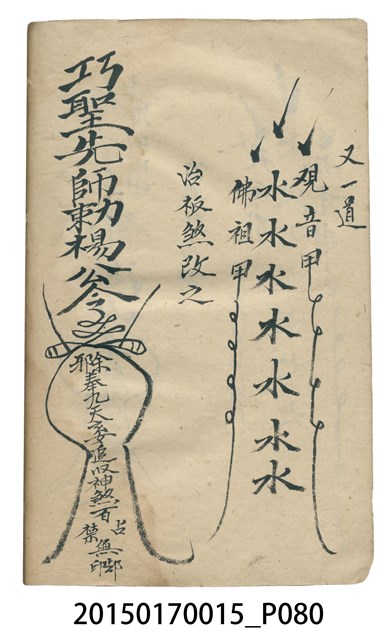 又一道
觀音甲
水水水水水水水
佛祖甲
治板煞改之
巧聖先師勅楊公
除邪
奉九天玄女追收神煞百
占無
禁
20150170015_P080